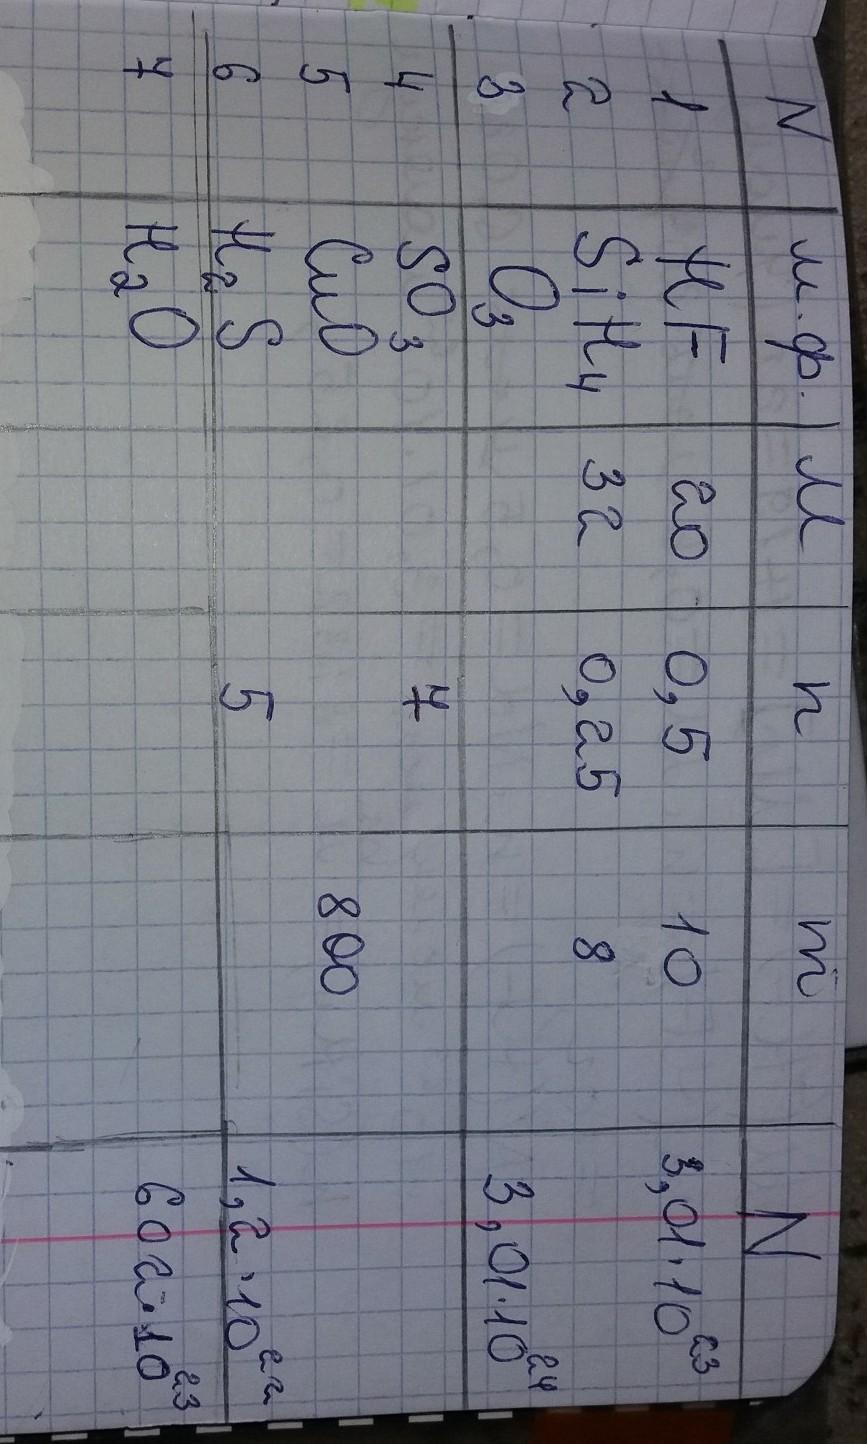 N м.ф. M n m N
1 HF 20 0,5 10 3,01·10²³
2 SiH₄ 32 0,25 8
3 O₃ 3,01·10²⁴
4 SO₃ 7
5 CuO 800
6 H₂S 5 1,2·10²²
7 H₂O 602·10²³